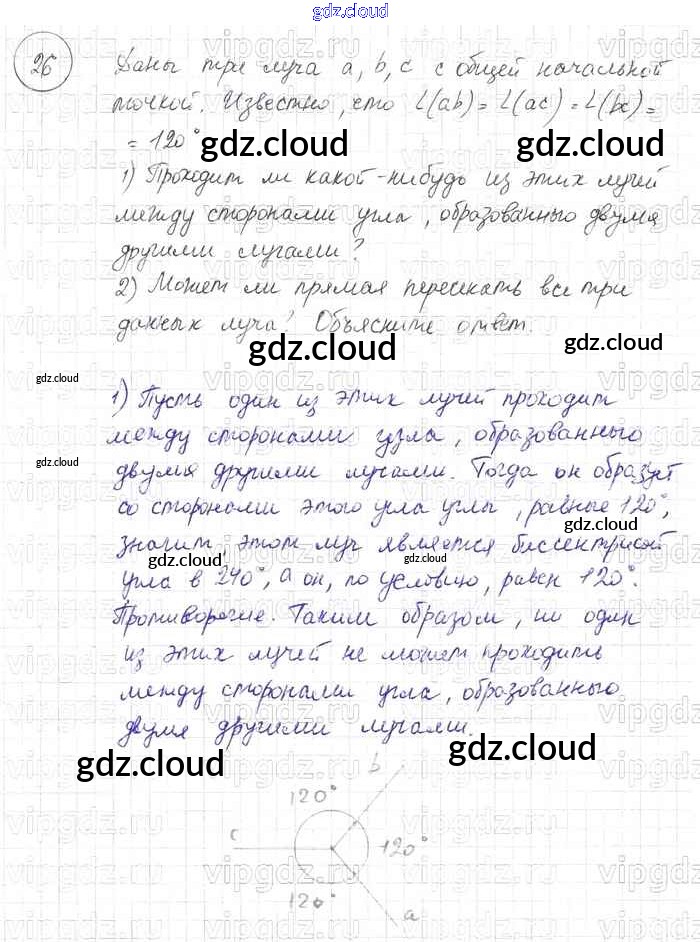 gdz.cloud
26
Даны три луча a, b, c с общей начальной
точкой. Известно, что ∠(ab) = ∠(ac) = ∠(bc) =
= 120°
gdz.cloud gdz.cloud
1) Проходит ли какой-нибудь из этих лучей
между сторонами угла, образованного двумя
другими лучами?
2) Может ли прямая пересекать все три
данных луча? Объясните ответ.
gdz.cloud gdz.cloud
gdz.cloud
1) Пусть один из этих лучей проходит
между сторонами узла, образованного
gdz.cloud
двумя другими лучами. Тогда он образует
со сторонами этого угла углы, равные 120°,
gdz.cloud
значит, этот луч является биссектрисой
gdz.cloud
угла в 240°, а он, по условию, равен 120°.
Противоречие. Таким образом, ни один
из этих лучей не может проходить
между сторонами угла, образованного
двумя другими лучами.
gdz.cloud gdz.cloud
b
120°
c
120°
120°
a